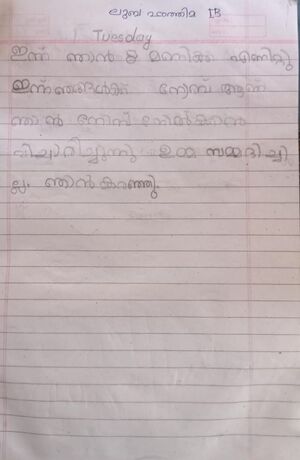 ലുബ ഫാത്തിമ IB
Tuesday
ഇന്ന് ഞാൻ 8 മണിക്ക് എണിറ്റു
ഇന്ന് ഞങ്ങൾക്ക് നോമ്പ് ആണ്
ഞാൻ നോമ്പ് നോൽക്കാൻ
വിചാരിച്ചുന്നു ഉമ്മ സമ്മദിച്ചി
ല്ല. ഞാൻ കരഞ്ഞു.